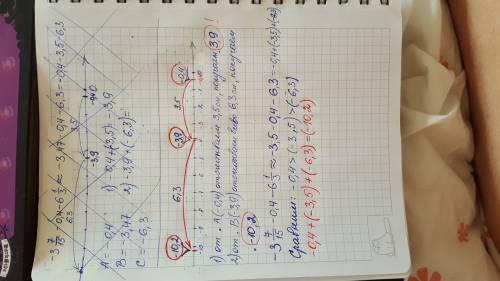 -3 7/15 - 0,4 - 6 1/3 ≈ -3,47 - 0,4 - 6,3 = -0,4 - 3,5 - 6,3
6,3 3,5
-3,9 -0,4 0
A = -0,4 1) -0,4 + (-3,5) = -3,9
B = -3,47 2) -3,9 + (-6,3) =
C = -6,3
-10,2 6,3 -3,9 3,5 -0,4
-10 -9 -8 -7 -6 -5 -4 -3 -2 -1 0
1) от • A (-0,4) отсчитываем 3,5 см, получаем 3,9 !
2) от • B (-3,9) отсчитываем влево 6,3 см, получаем
• -10,2
-3 7/15 - 0,4 - 6 1/3 ≈ -3,5 - 0,4 - 6,3 = -0,4 + (-3,5) + (-6,3)
Сравнили: -0,4 > (-3,5) > (-6,3)
-0,4 + (-3,5) + (-6,3) = (-10,2)